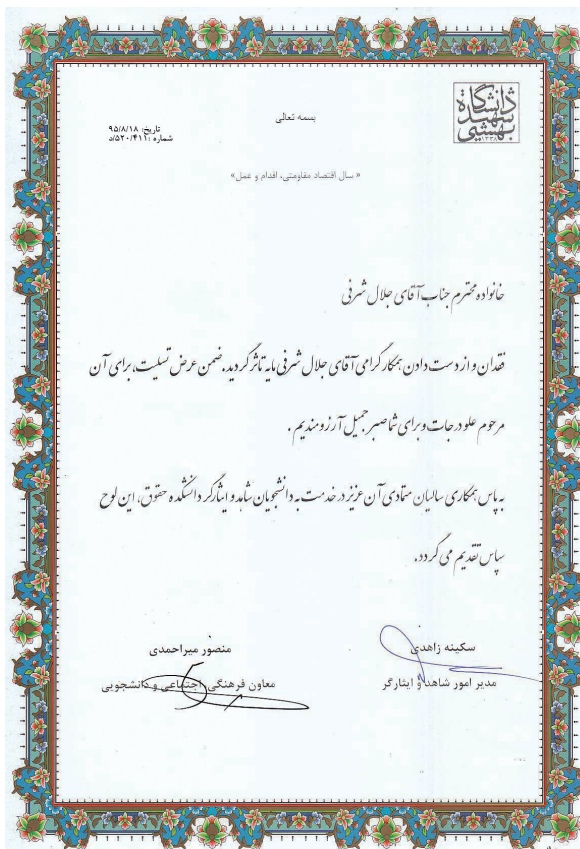 دانشگاه
شهید
بهشتی
۱۳۳۸
بسمه تعالی
تاریخ: ۹۵/۸/۱۸
شماره: ۵۲۰/۴۱۱/د
« سال اقتصاد مقاومتی، اقدام و عمل»
خانواده محترم جناب آقای جلال شرفی
فقدان و از دست دادن همکار گرامی آقای جلال شرفی مایه تاثر گردید. ضمن عرض تسلیت، برای آن
مرحوم علو درجات و برای شما صبر جمیل آرزومندیم .
به پاس همکاری سالیان متمادی آن عزیز در خدمت به دانشجویان شاهد و ایثارگر دانشکده حقوق، این لوح
سپاس تقدیم می گردد.
سکینه زاهدی
مدیر امور شاهد و ایثارگر
منصور میراحمدی
معاون فرهنگی، اجتماعی و دانشجویی